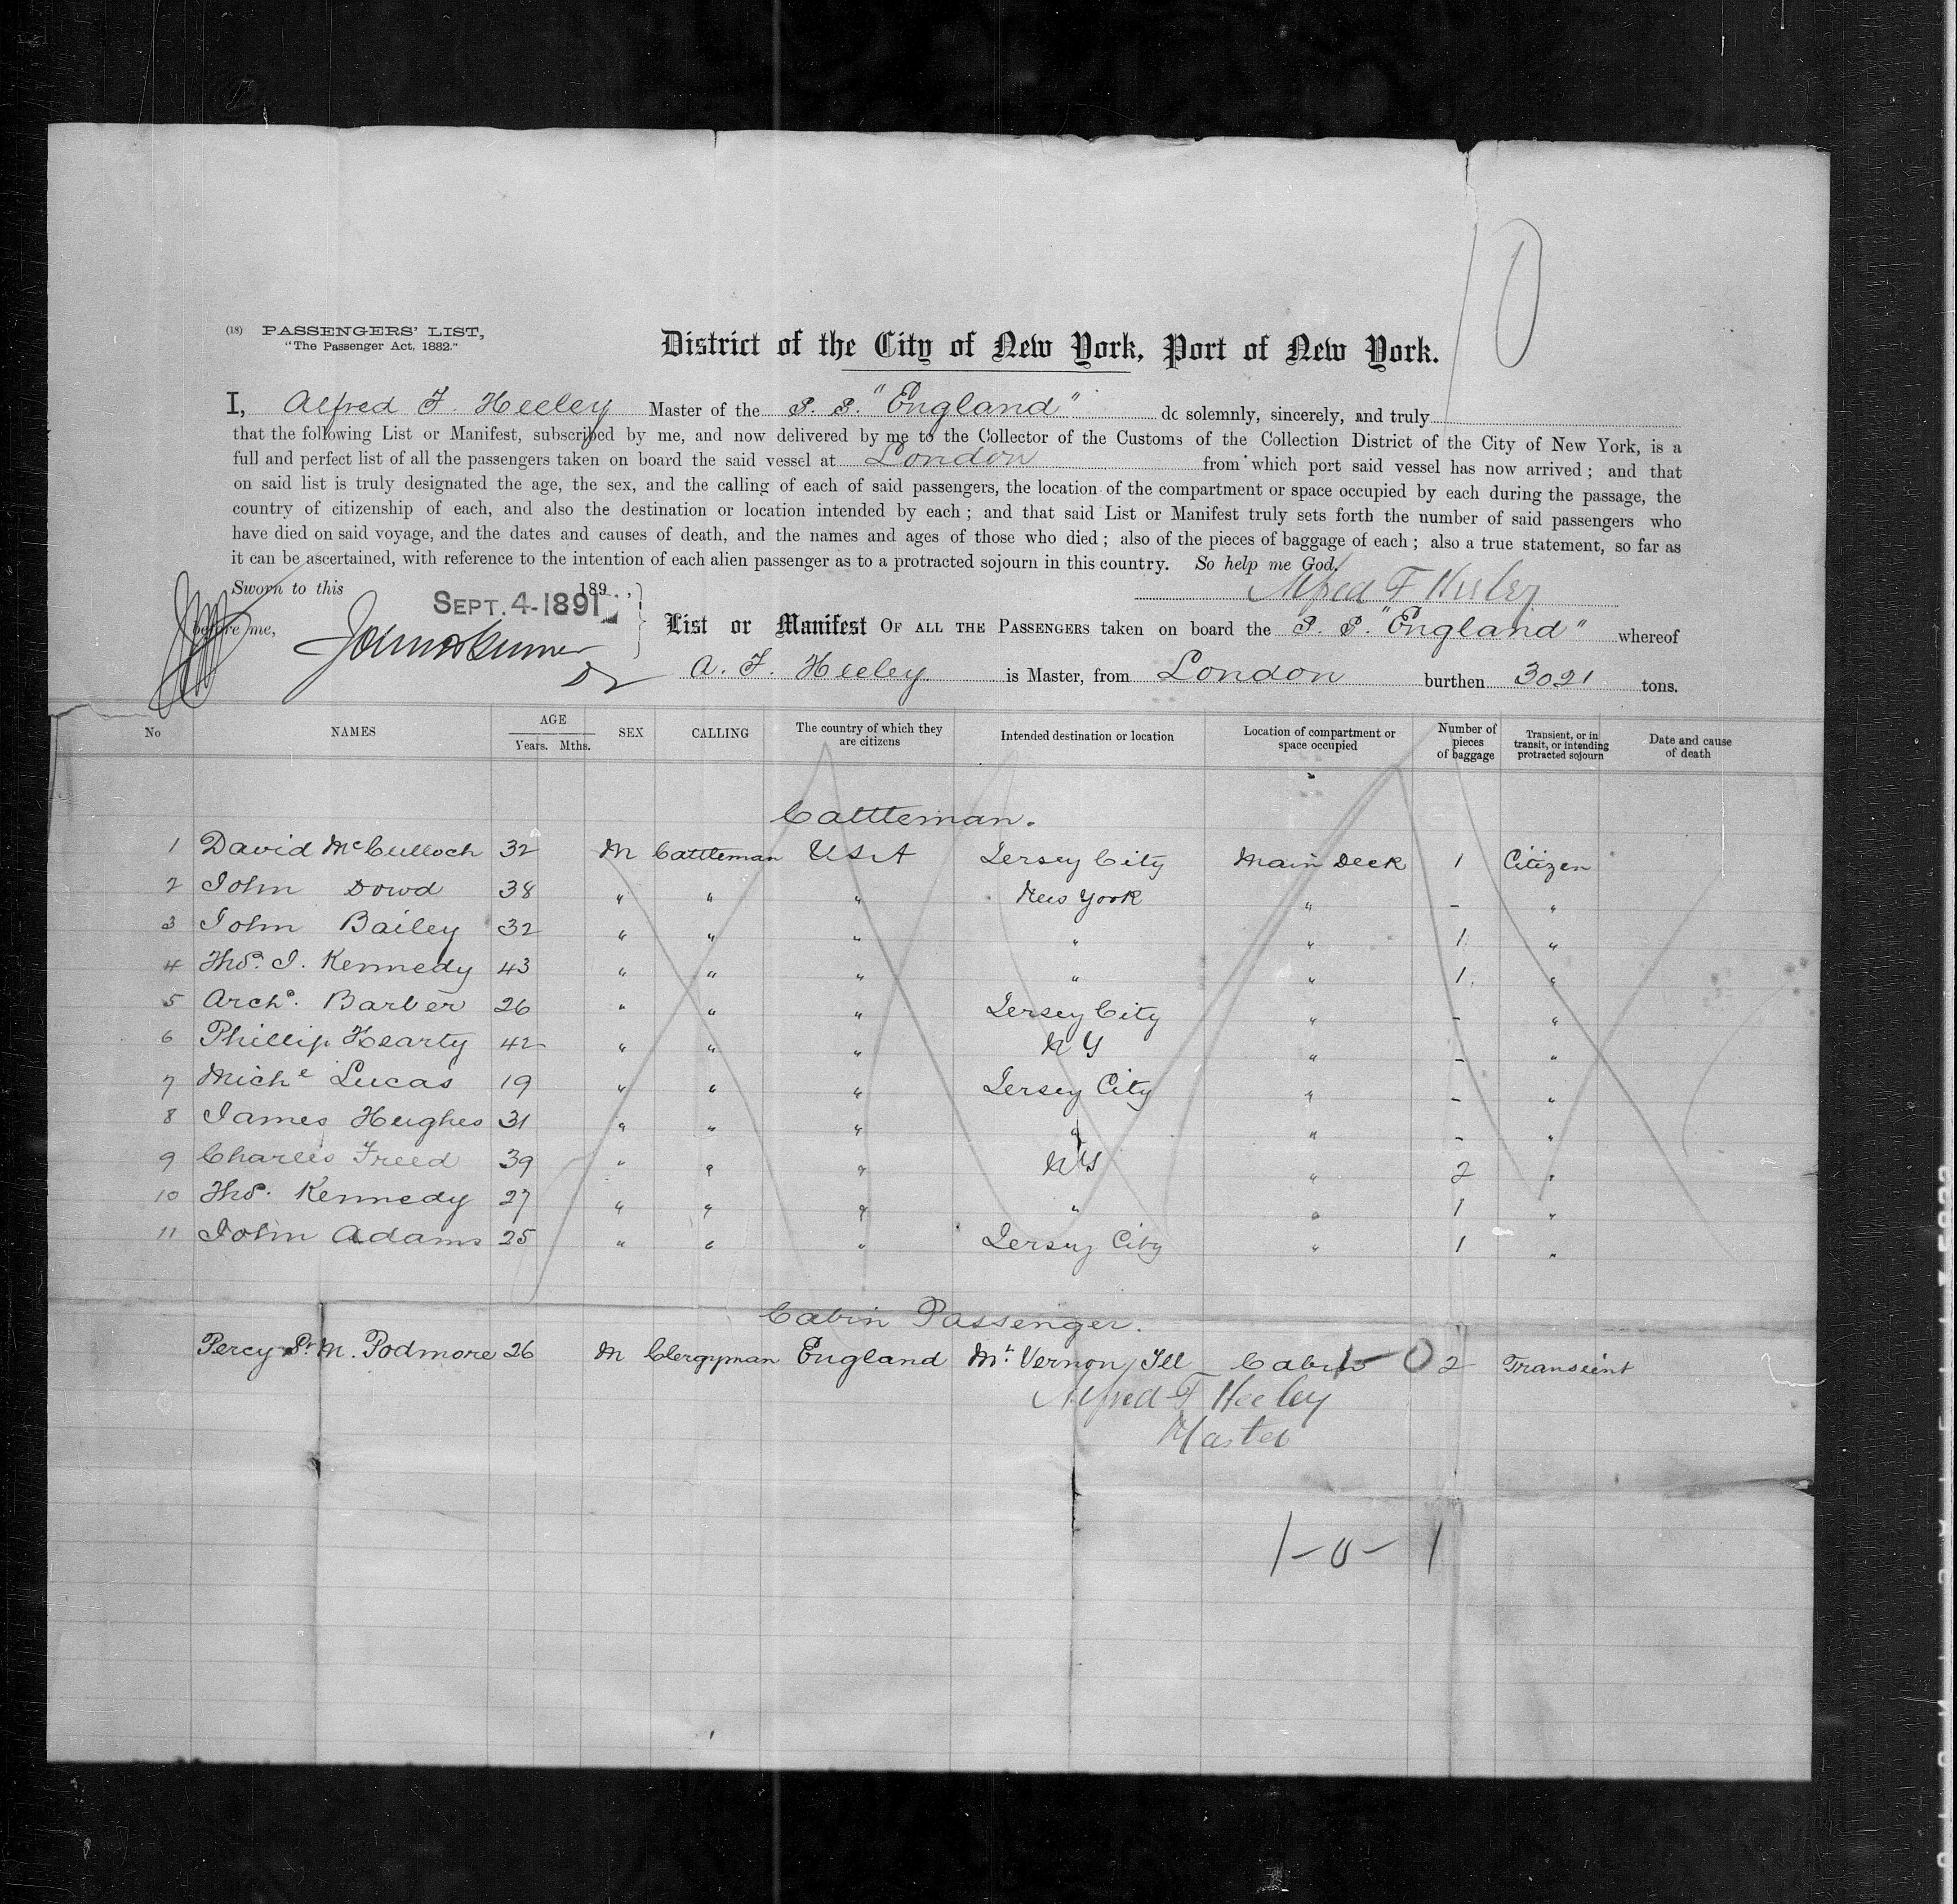 (18) PASSENGERS' LIST,
"The Passenger Act, 1882."
District of the City of New York, Port of New York.
I, Alfred F. Heeley Master of the S. S. "England" do solemnly, sincerely, and truly
that the following List or Manifest, subscribed by me, and now delivered by me to the Collector of the Customs of the Collection District of the City of New York, is a
full and perfect list of all the passengers taken on board the said vessel at London from which port said vessel has now arrived; and that
on said list is truly designated the age, the sex, and the calling of each of said passengers, the location of the compartment or space occupied by each during the passage, the
country of citizenship of each, and also the destination or location intended by each; and that said List or Manifest truly sets forth the number of said passengers who
have died on said voyage, and the dates and causes of death, and the names and ages of those who died; also of the pieces of baggage of each; also a true statement, so far as
it can be ascertained, with reference to the intention of each alien passenger as to a protracted sojourn in this country. So help me God.
Sworn to this 189 Alfred F Heeley
SEPT. 4-1891
before me,
List or Manifest OF ALL THE PASSENGERS taken on board the S. S. "England" whereof
A. F. Heeley is Master, from London burthen 3021 tons.
No NAMES AGE Years. Mths. SEX CALLING The country of which they are citizens Intended destination or location Location of compartment or space occupied Number of pieces of baggage Transient, or in transit, or intending protracted sojourn Date and cause of death
Cattleman.
1 David McCulloch 32 M Cattleman USA Jersey City Main Deck 1 Citizen
2 John Dowd 38 " " " New York " - "
3 John Bailey 32 " " " " " 1 "
4 Thos. J. Kennedy 43 " " " " " 1 "
5 Archd. Barber 26 " " " Jersey City " - "
6 Phillip Hearty 42 " " " NY " - "
7 Michl Lucas 19 " " " Jersey City " - "
8 James Hughes 31 " " " " " - "
9 Charles Freed 39 " " " NY " 2 "
10 Thos. Kennedy 27 " " " " " 1 "
11 John Adams 25 " " " Jersey City " 1 "
Cabin Passenger.
Percy St. M. Podmore 26 M Clergyman England Mt. Vernon, Ill Cabin 1-0 2 Transient
Alfred F Heeley
Master
1-0-1